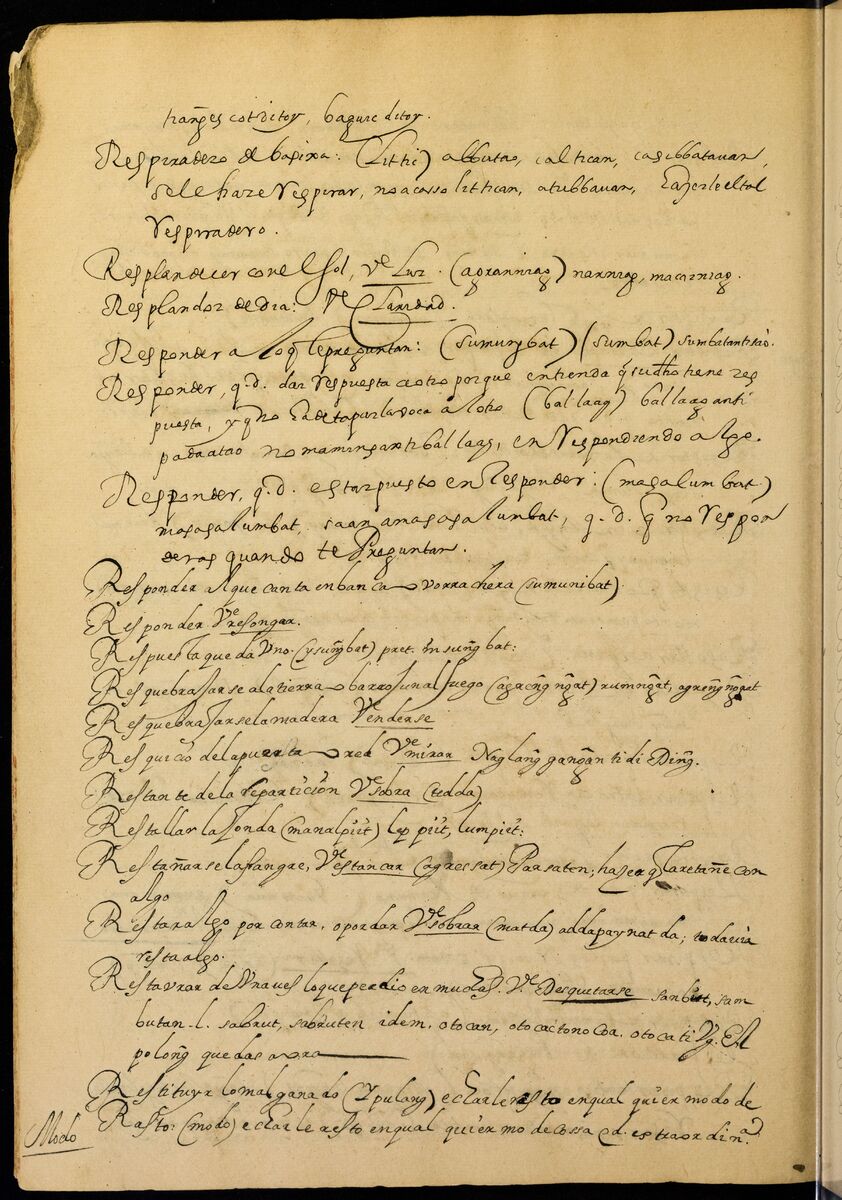 cot ditoy, baguie ditoy.
Respiradero de basixa: (Littic) albutao, caltican, casibbatauan,
sele haze respirar, no acasso littican, atubbauan, hazerle el tal
respiradero.
Resplandecer con el sol, Ve Luz. (agranniag) narniag, macarniag.
Resplandor de dia: Ve Claridad.
Responder a loq̃ le preguntan: (sumungbat) (sumbat) sumbatantitao.
Responder, q.d. dar respuesta a otro porque entienda q̃ su dho tiene res
puesta, y q̃ no ha de tapar la voca al otro (ballaag) ballaag anti
padaatao no mamin santi ballaag, en respondiendo algo.
Responder, q.d. estar puesto en Responder: (masalumbat)
masasalumbat, saan amasasalumbat, q.d. q̃ no respon
deras quando te Preguntan.
Responder al que canta en banca o vorrachera (sumunibat)
Responder Ve resongar.
Respuesta que da Uno. (ysung̃bat) pret. insung̃bat:
Resquebrajarse a la tierra o barro junal fuego (agreng̃ng̃at) rumng̃at, agreng̃ng̃at
Resquebrajarse la madera Venderse
Resquicio de la puerta o red Ve mirar Naglang̃gang̃an ti di Ding̃.
Restante de la reparticiun Ve sobra (tedda)
Restallar la honda (manalpiit) lippiit, lumpiit:
Restañarse la sangre, Ve estancar (agressat) Parsaten, hazer q̃ la retañe con
algo
Restar algo por contar, o por dar Ve sobrar (matda) adda pay natda; todavia
resta algo.
Restaurar de Una ves lo que perdio en muchas. Ve Desquitarse sanbut, sam
butan. l. sabrut, sabruten idem. otocan, otocac tono coa. otoca ti Vg. El
polong̃ que das aora
Restituyr lo mal ganado (Ypulang) echarle resto en qual quier modo de
Rasto: (modo) echarle resto en qual quier mo de cossa q.d. extraordin.ª
Modo